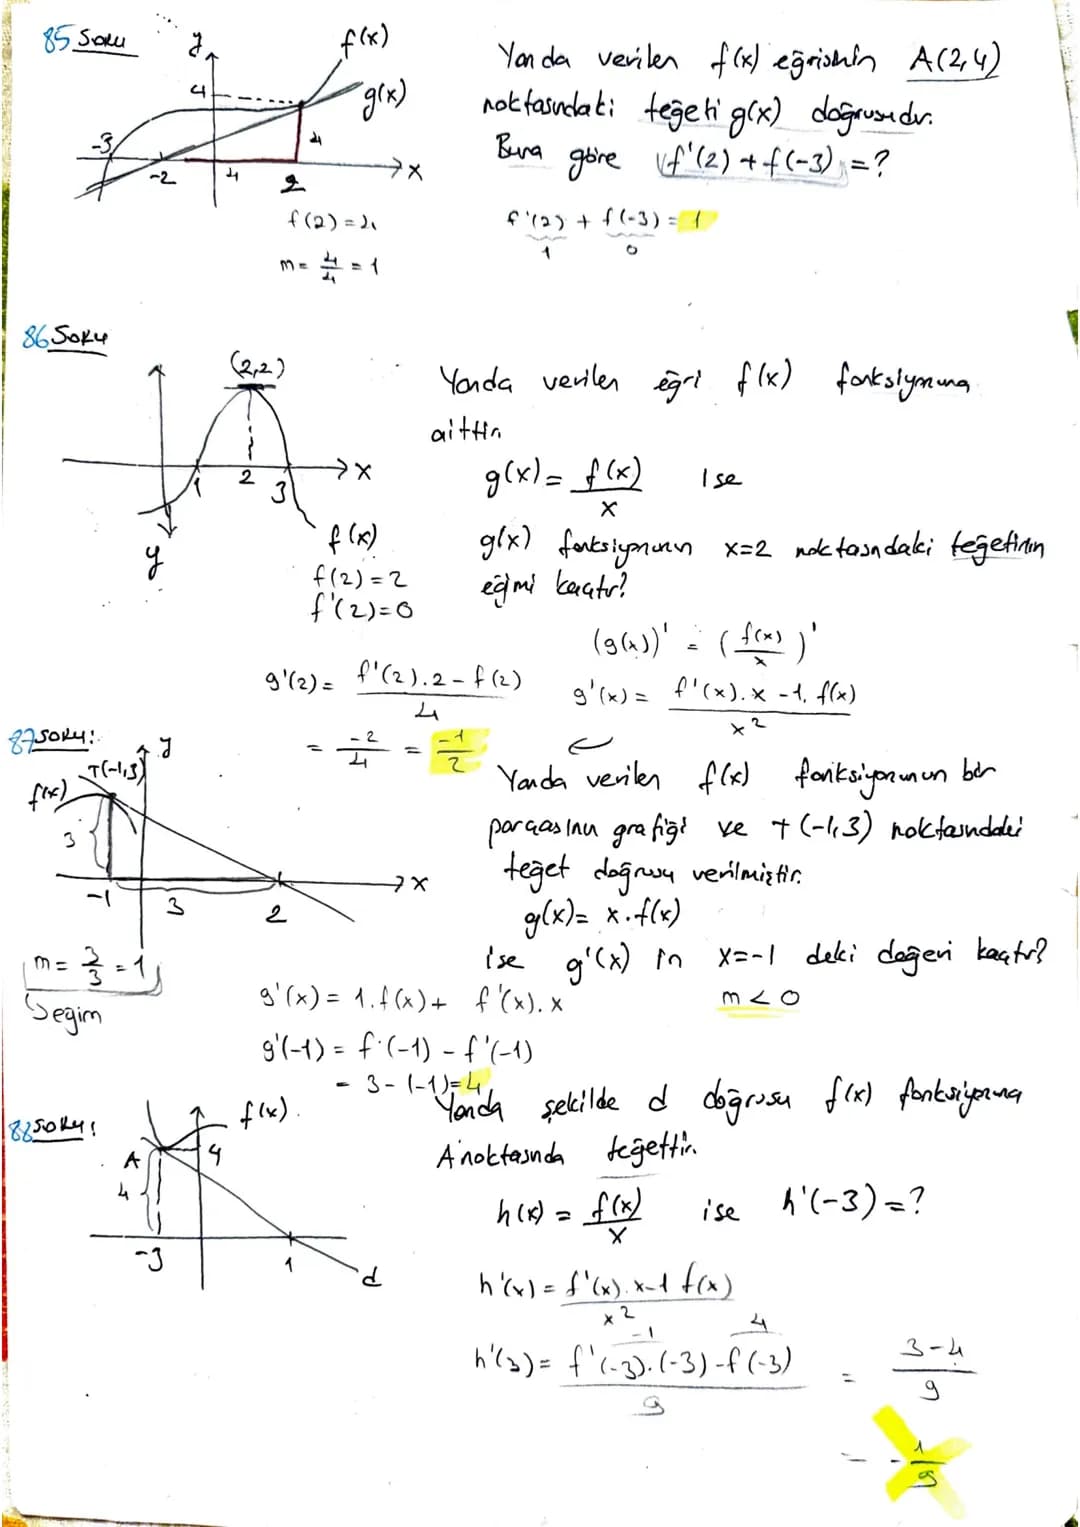 85 Soru
y
f(x)
4
g(x)
-3
4
x
-2
4
2
f(2)=4
m= 4/4 = 1
Yanda verilen f(x) eğrisinin A(2,4)
noktasındaki teğeti g(x) doğrusudur.
Buna göre f'(2)+f(-3)=?
f'(2) + f(-3) = 1
1 0
86 Soru
(2,2)
1 2 3
x
y
f(x)
f(2)=2
f'(2)=0
Yanda verilen eğri f(x) fonksiyonuna
aittir.
g(x)= f(x)/x ise
g(x) fonksiyonunun x=2 noktasındaki teğetinin
eğimi kaçtır?
(g(x))' = (f(x)/x)'
g'(x)= f'(x).x -1.f(x) / x²
g'(2)= f'(2).2 - f(2) / 4
= -2/4 = -1/2
87 soru:
y
T(-1,3)
f(x)
3
x
-1
3
2
m= 3/3 = 1
eğim
Yanda verilen f(x) fonksiyonunun bir
parçasının grafiği ve T(-1,3) noktasındaki
teğet doğrusu verilmiştir.
g(x)= x.f(x)
ise g'(x) in x=-1 deki değeri kaçtır?
m<0
g'(x)= 1.f(x)+ f'(x).x
g'(-1)= f(-1) - f'(-1)
= 3-(-1)=4
88 soru:
f(x)
A
4
4
-3
1
d
Yanda şekilde d doğrusu f(x) fonksiyonuna
A noktasında teğettir.
h(x) = f(x)/x ise h'(-3)=?
h'(x)= f'(x).x-1 f(x) / x²
-1 4
h'(3)= f'(-3).(-3)-f(-3) / 9 = 3-4 / 9
= -1/9